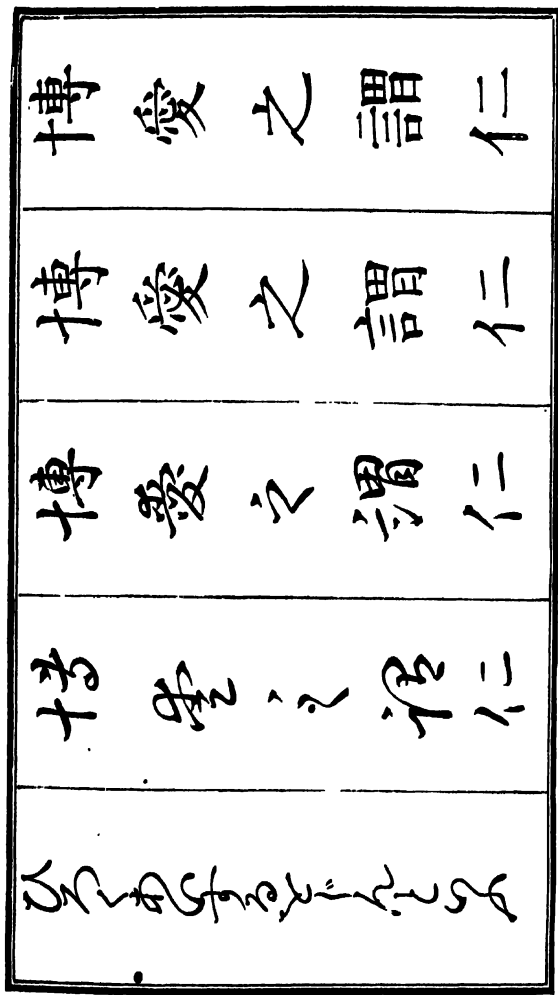 博愛之謂仁
博愛之謂仁
博愛之謂仁
博愛之謂仁
ひろく